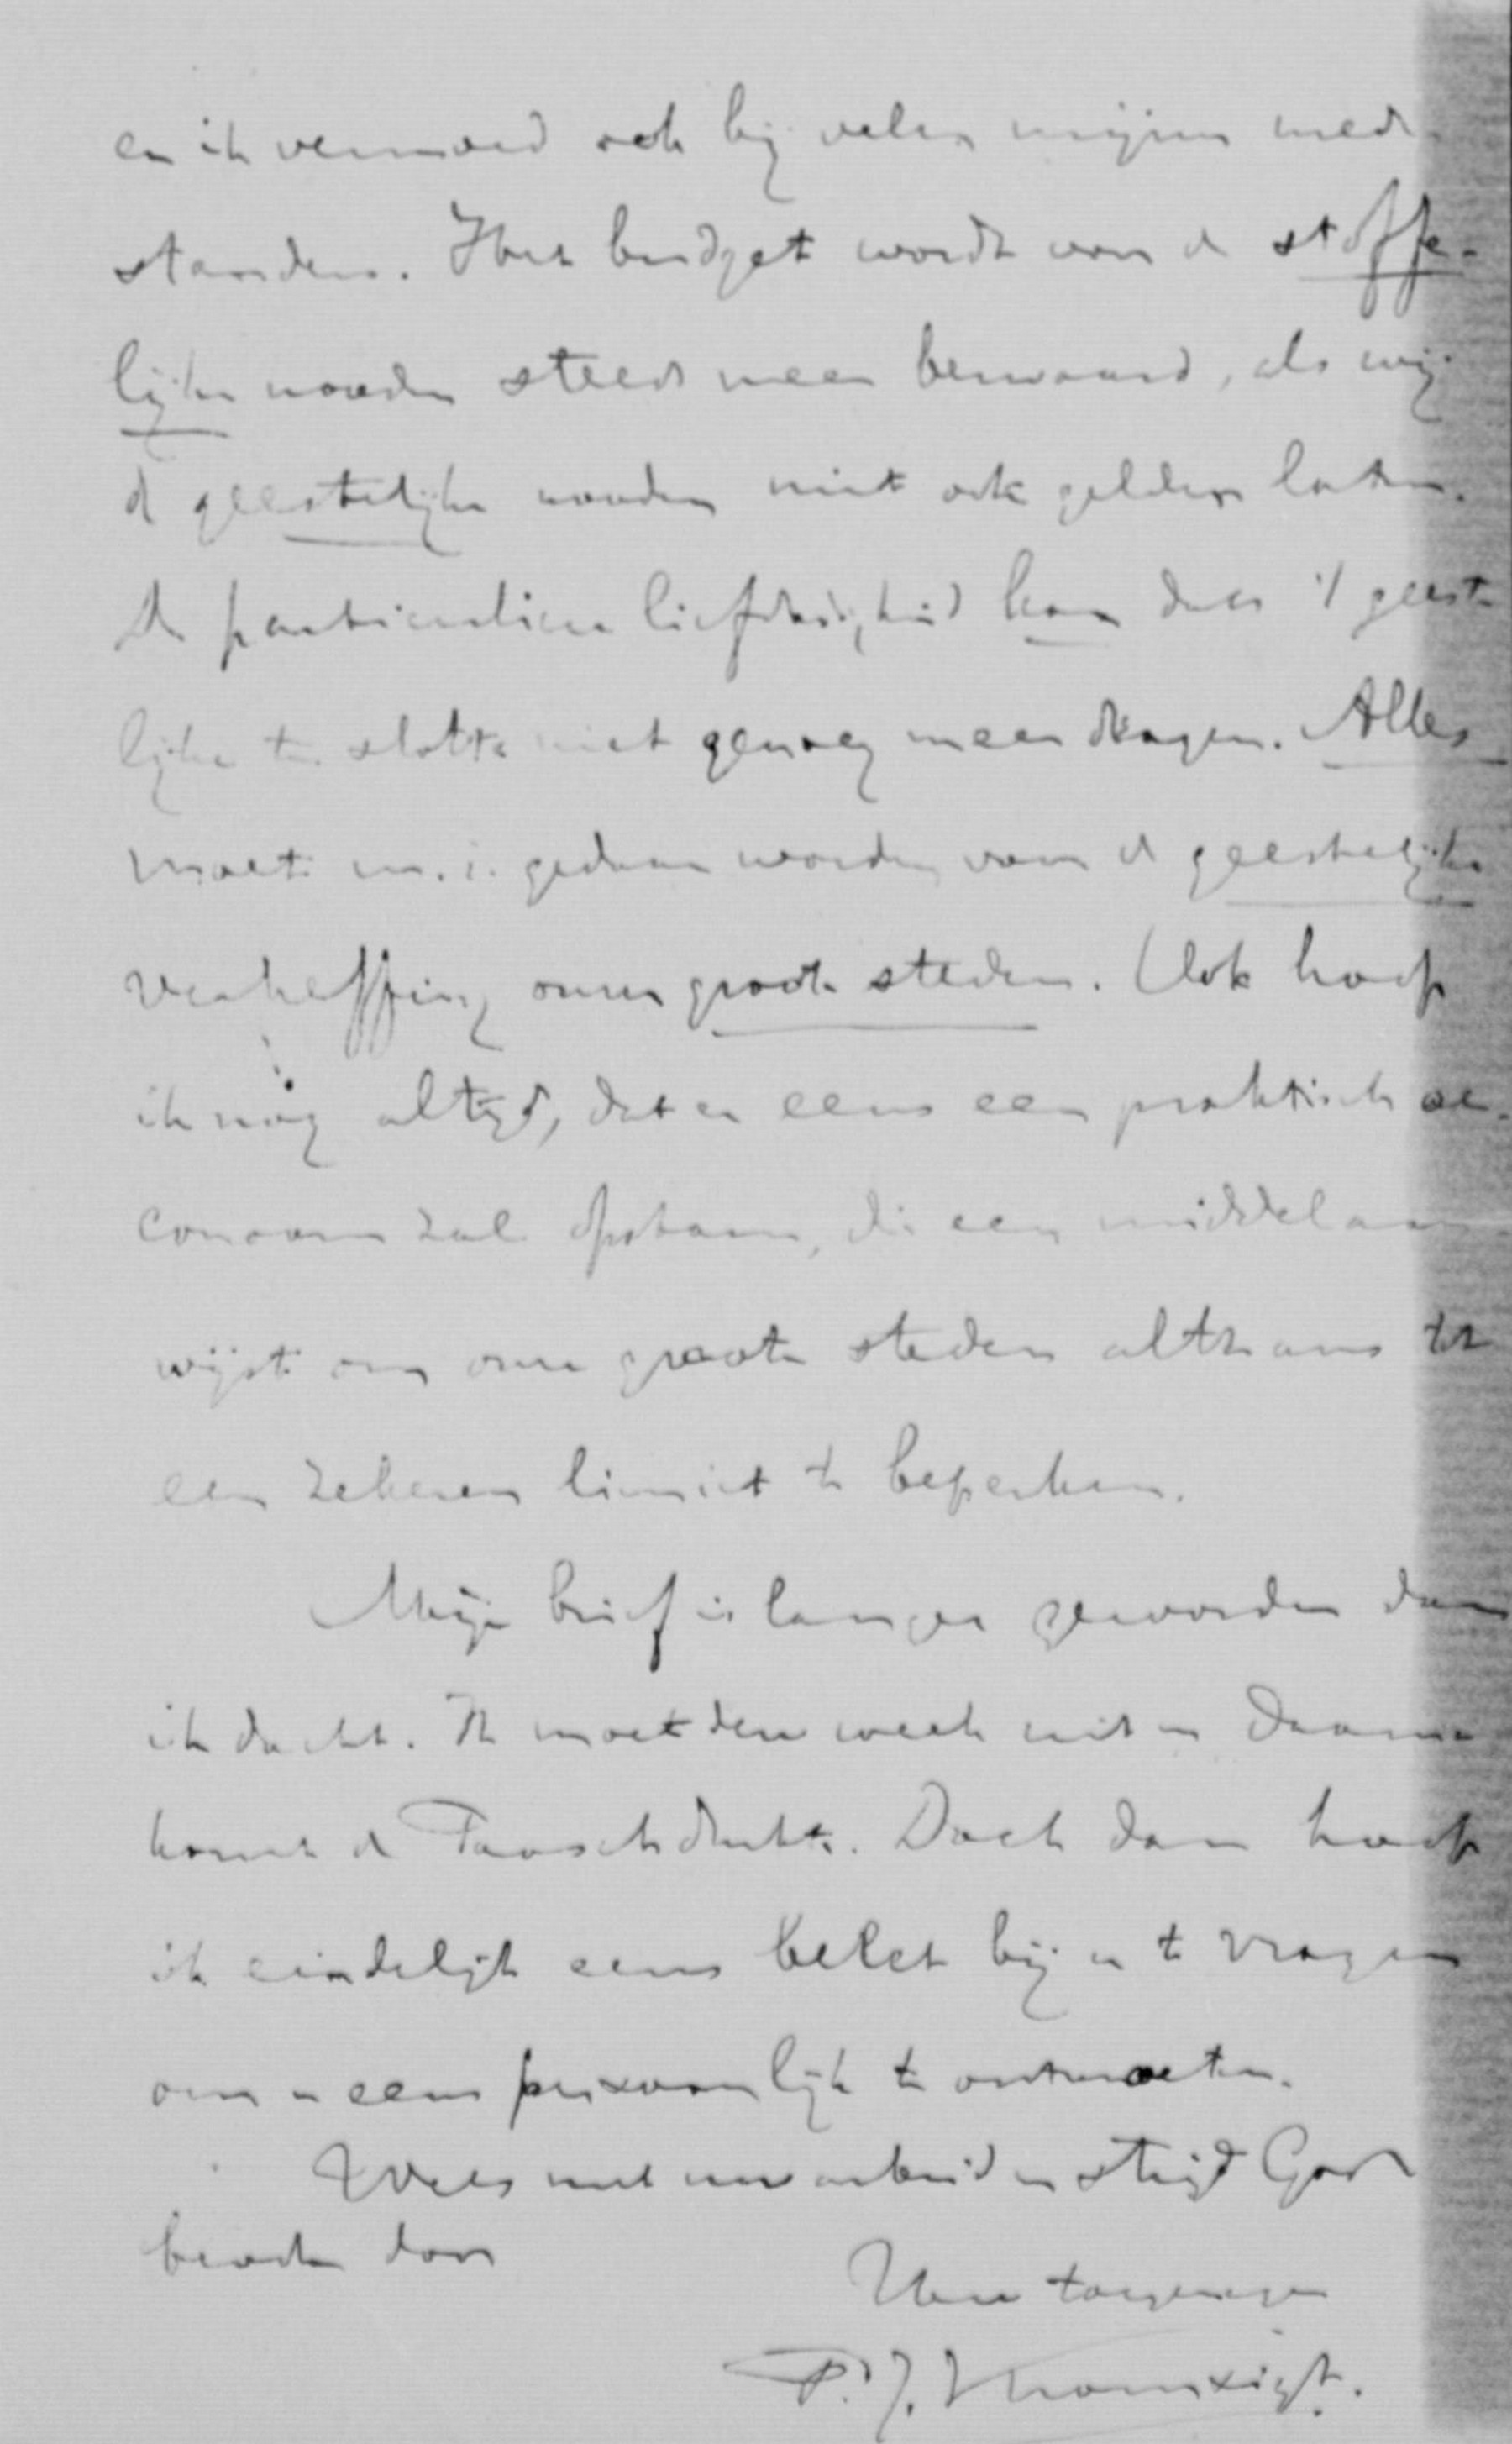 en ik vermoed ook bij velen mijner mede-
standers. Het budget wordt van de stoffe-
lijke nooden steeds meer bezwaard, als wij
de geestelijke nooden niet ook gelden laten.
De particuliere liefdadigheid kan daar 't geeste-
lijke ten slotte niet genoeg meer dragen. Alles
moet m.i. gedaan worden voor de geestelijke
verheffing onzer groote steden. Ook hoop
ik nòg altijd, dat er eens een praktisch oe-
conoom zal opstaan, die een middel aan-
wijst om onze groote steden althans tot
een zekeren limiet te beperken.
Mijn brief is langer geworden dan
ik dacht. Ik moet deze week uit en daarna
komt de Paaschdrukte. Doch dan hoop
ik eindelijk eens belet bij u te vragen
om u eens persoonlijk te ontmoeten.
Wees met uw arbeid en strijd Gode
bevolen door
Uw toegenegen
P. J. Kromsigt.